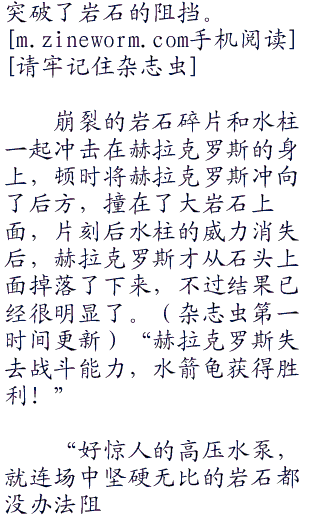 突破了岩石的阻挡。
[m.zineworm.com手机阅读]
[请牢记住杂志虫]
崩裂的岩石碎片和水柱
一起冲击在赫拉克罗斯的身
上，顿时将赫拉克罗斯冲向
了后方，撞在了大岩石上
面，片刻后水柱的威力消失
后，赫拉克罗斯才从石头上
面掉落了下来，不过结果已
经很明显了。（杂志虫第一
时间更新）“赫拉克罗斯失
去战斗能力，水箭龟获得胜
利！”
“好惊人的高压水泵，
就连场中坚硬无比的岩石都
没办法阻